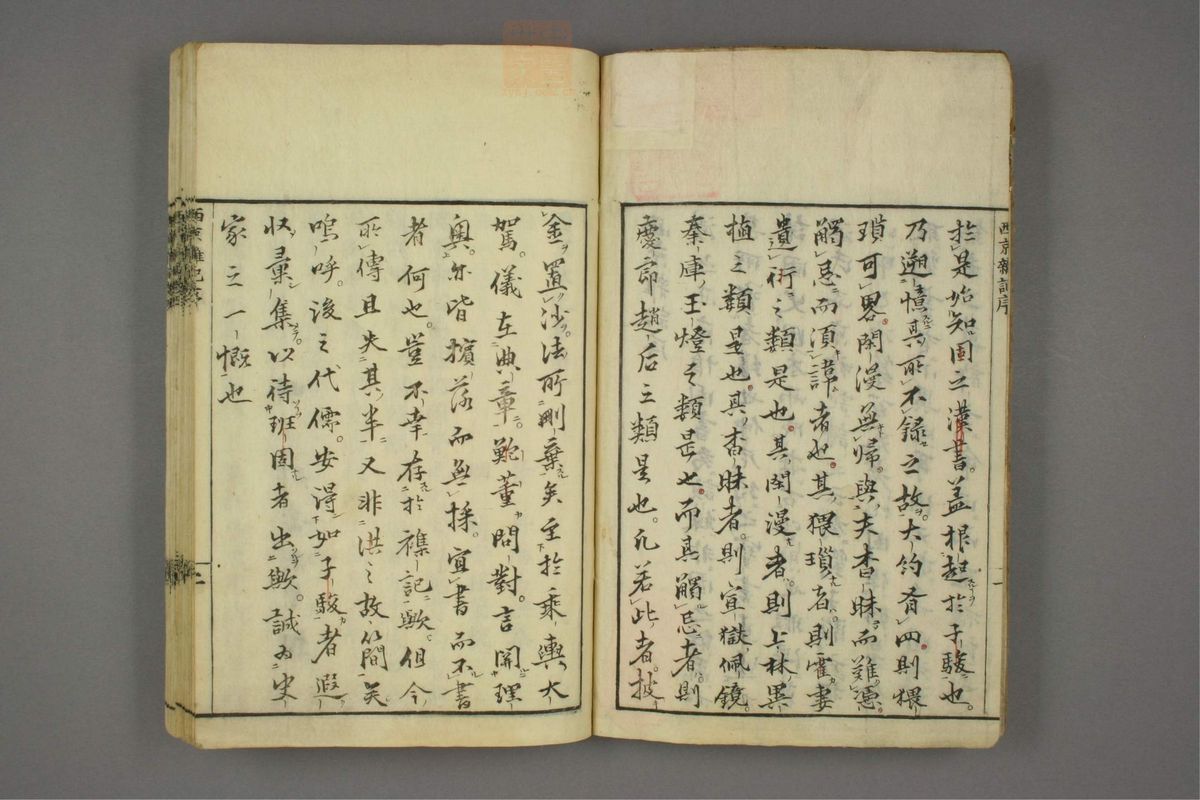 西京雜記序
於是始知固之漢書。蓋根起於子駿也。
乃遡憶其所不錄之故。大約有四則猥
瑣可畧。閑漫無歸。與夫杳昧而難憑
觸忌而須諱者也。其猥瑣者。則霍妻
遺衍之類是也。其閑漫者。則上林異
植之類是也。其杳昧者。則宣獄佩鏡
秦庫玉燈之類是也。而其觸忌者。則
慶郎趙后之類是也。凡若此者。披
金置沙。法所刪棄矣至於乘輿大
駕。儀在典章。鮑董問對。言關理
奧。亦皆擯落而無採。宜書而不書
者何也。豈不幸存於雜記歟。但今
所傳且失其半又非洪之故簡矣
嗚呼。後之代儒。安得如子駿者遐
收彙集以待班固者出歟。誠為史
家之一慨也
西京雜記序
二